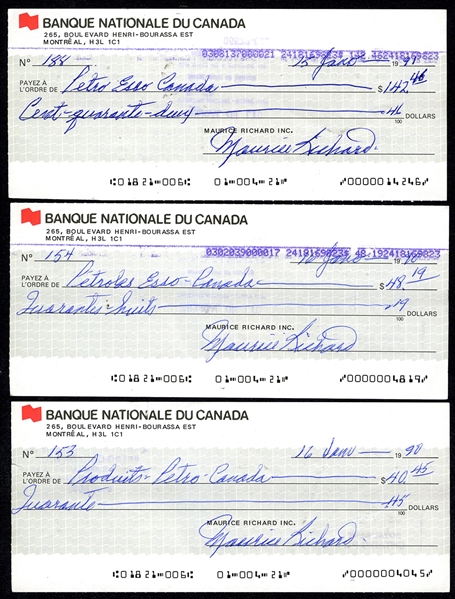 BANQUE NATIONALE DU CANADA
265, BOULEVARD HENRI-BOURASSA EST
MONTRÉAL, H3L 1C1
0308137000021 2418169823$ 142.462418169823
N° 188 15 Janv 1991
PAYEZ À
L'ORDRE DE Petro Esso Canada $ 142.46
Cent-quarante-deux 46/100 DOLLARS
MAURICE RICHARD INC.
Maurice Richard
⑆01821⑈006⑆ 01⑈004⑈21⑈ ⑈0000014246⑈
BANQUE NATIONALE DU CANADA
265, BOULEVARD HENRI-BOURASSA EST
MONTRÉAL, H3L 1C1
0302039000017 2418169823$ 48.192418169823
N° 154 16 Janv 1990
PAYEZ À
L'ORDRE DE Petroles Esso-Canada $ 48.19
Quarante-huit 19/100 DOLLARS
MAURICE RICHARD INC.
Maurice Richard
⑆01821⑈006⑆ 01⑈004⑈21⑈ ⑈0000004819⑈
BANQUE NATIONALE DU CANADA
265, BOULEVARD HENRI-BOURASSA EST
MONTRÉAL, H3L 1C1
N° 153 16 Janv 1990
PAYEZ À
L'ORDRE DE Produits-Petro-Canada $ 40.45
Quarante 45/100 DOLLARS
MAURICE RICHARD INC.
Maurice Richard
⑆01821⑈006⑆ 01⑈004⑈21⑈ ⑈0000004045⑈